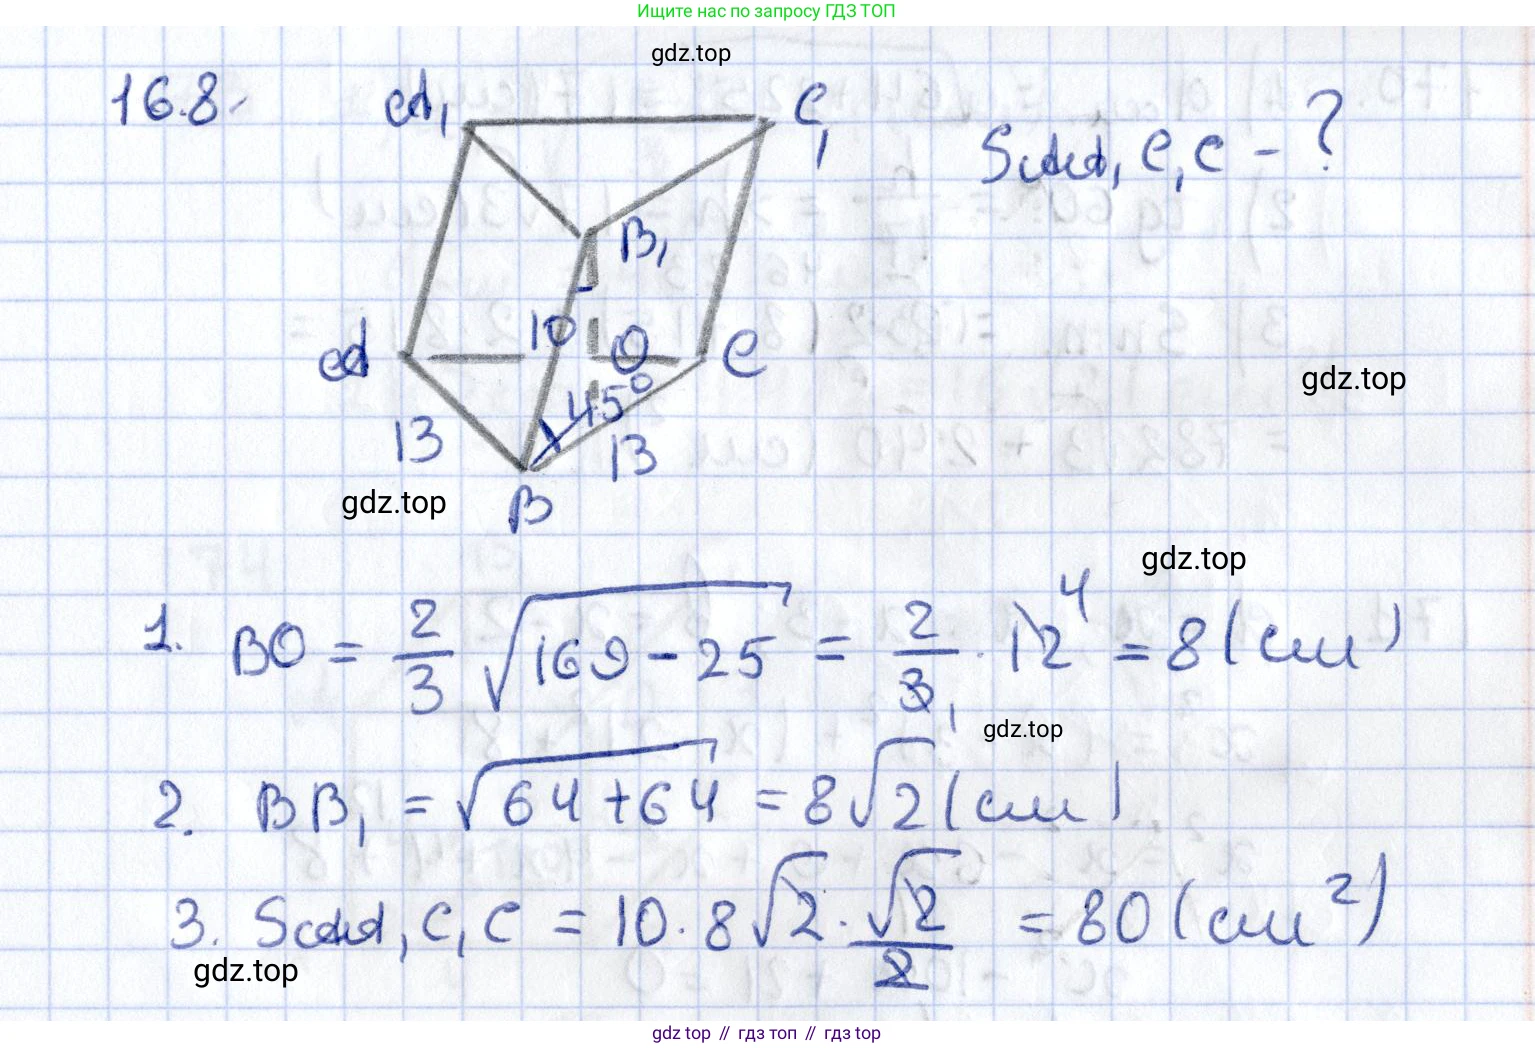 Ищите нас по запросу ГДЗ ТОП
gdz.top
16.8.
A₁
C₁
S AA₁C₁C - ?
B₁
10
O
A
C
45°
13
13
B
gdz.top
gdz.top
gdz.top
1. BO = 2/3 √(169 - 25) = 2/3 · 12 = 8 (см)
4
1
gdz.top
2. BB₁ = √(64 + 64) = 8√2 (см)
3. S AA₁C₁C = 10 · 8√2 · √2/2 = 80 (см²)
gdz.top
gdz top // гдз топ // гдз top